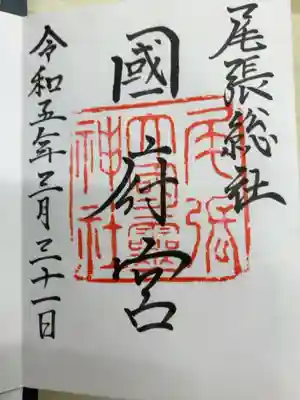 尾張総社
國府宮
尾張大國霊神社
令和五年三月二十一日